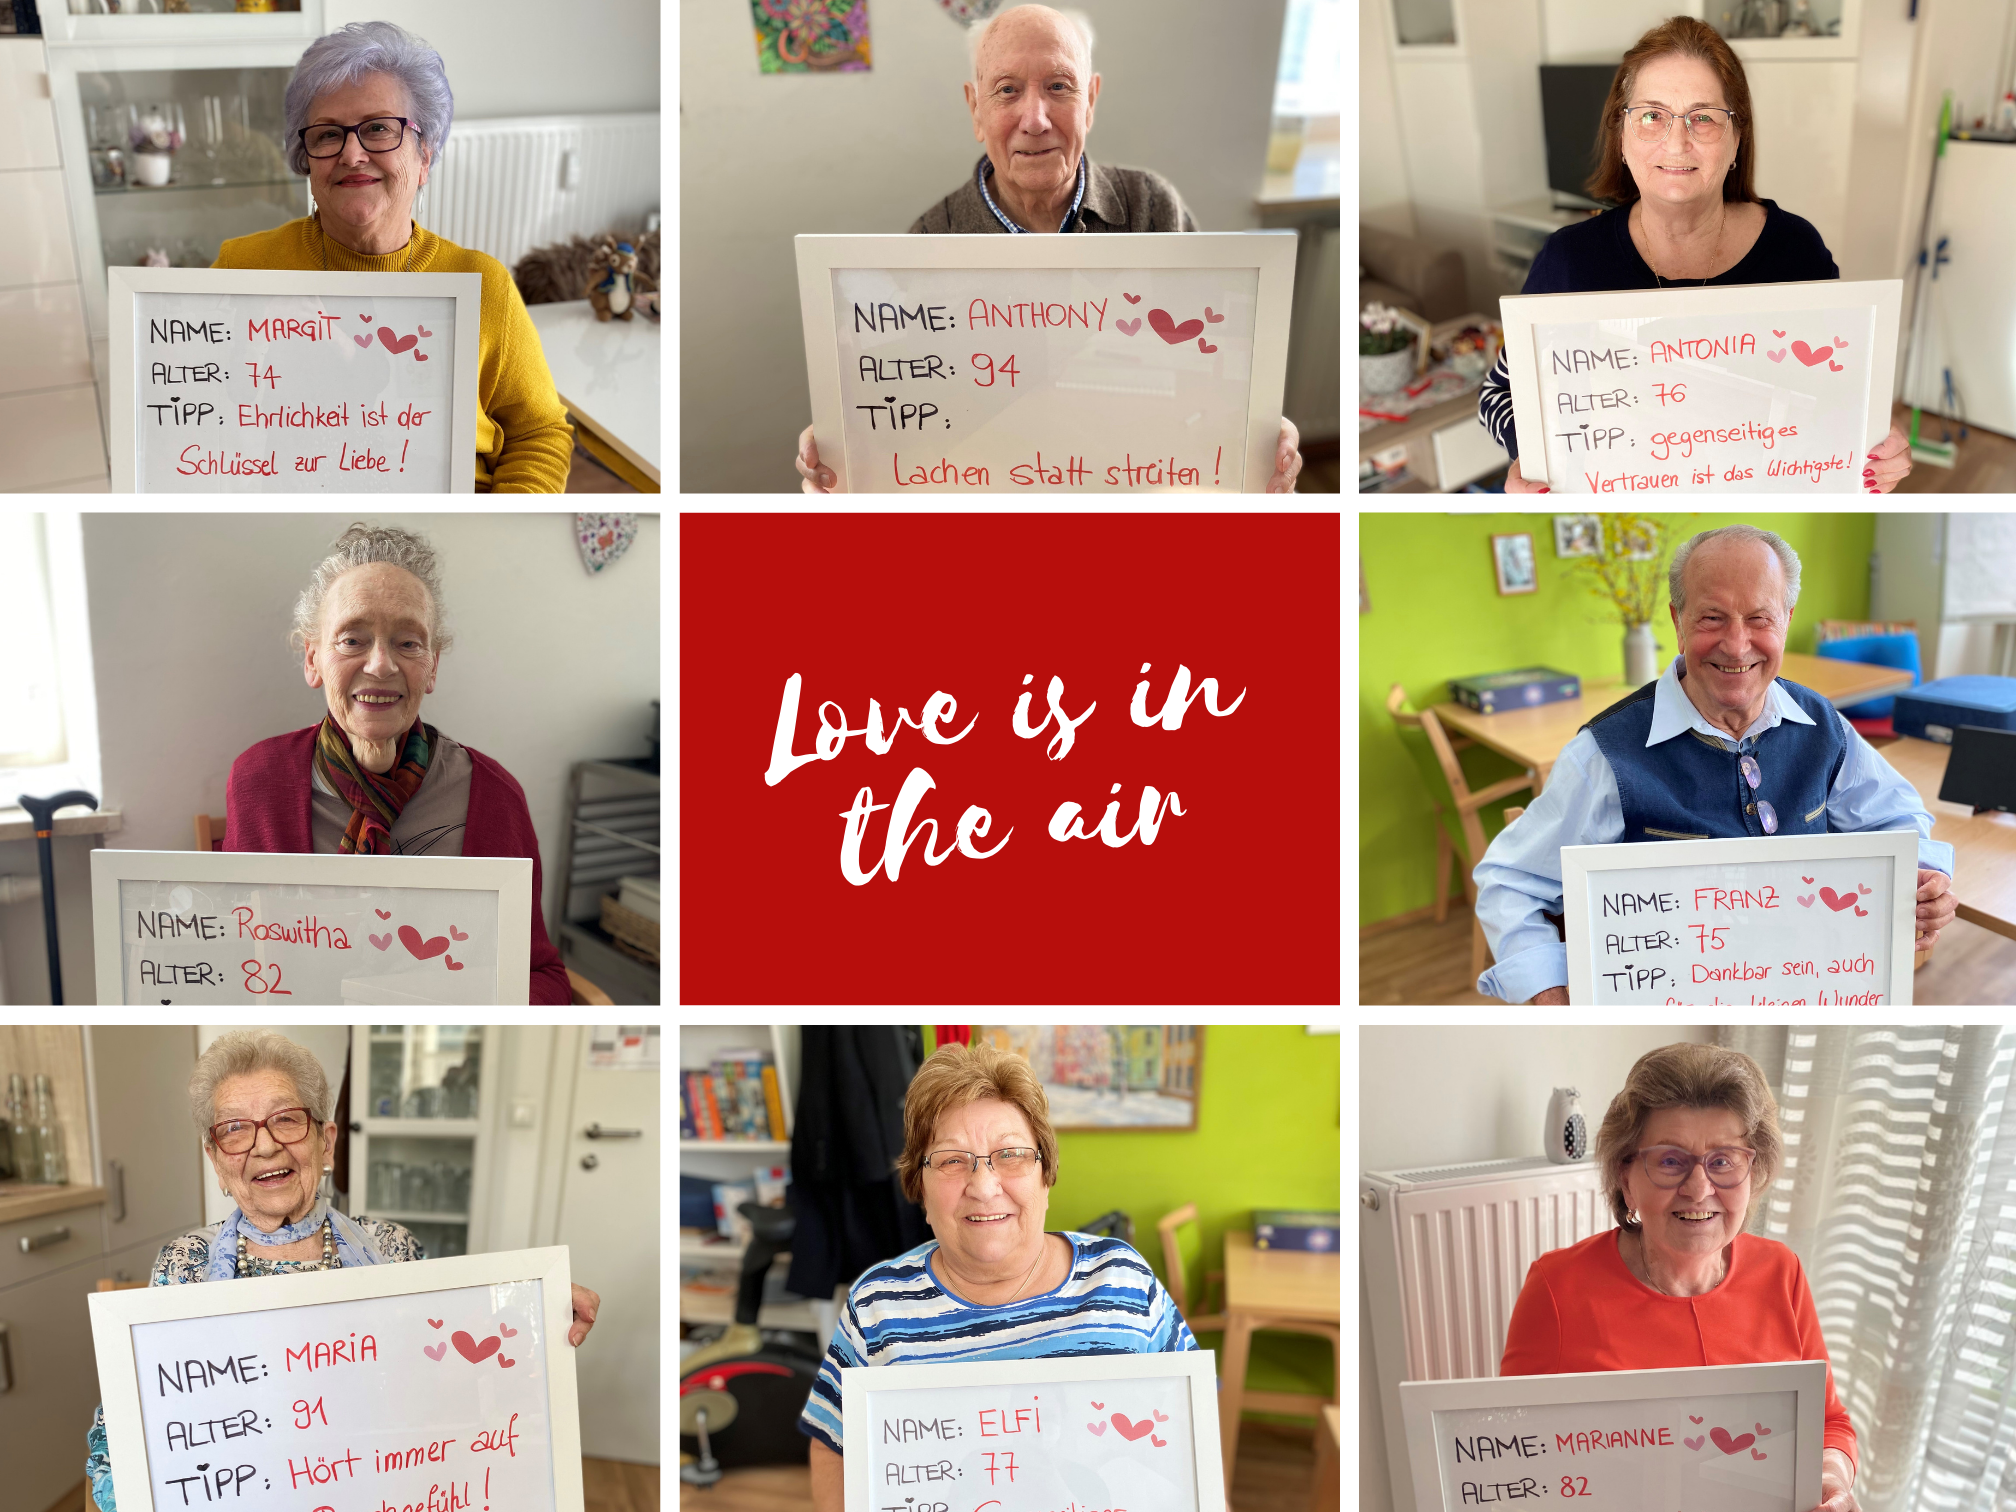 NAME: MARGIT
ALTER: 74
TIPP: Ehrlichkeit ist der
Schlüssel zur Liebe!
NAME: ANTHONY
ALTER: 94
TIPP:
Lachen statt streiten!
NAME: ANTONIA
ALTER: 76
TIPP: gegenseitiges
Vertrauen ist das Wichtigste!
NAME: Roswitha
ALTER: 82
Love is in
the air
NAME: FRANZ
ALTER: 75
TIPP: Dankbar sein, auch
für die kleinen Wunder
NAME: MARIA
ALTER: 91
TIPP: Hört immer auf
Bauchgefühl!
NAME: ELFI
ALTER: 77
TIPP:
NAME: MARIANNE
ALTER: 82